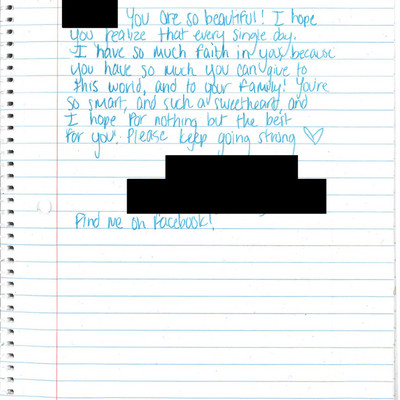 You are so beautiful! I hope
you realize that every single day.
I have so much faith in you because
you have so much you can give to
this world, and to your family! You're
so smart, and such a sweetheart, and
I hope for nothing but the best
for you. Please keep going strong ♡
Find me on Facebook!